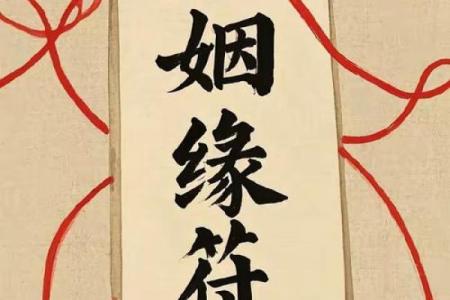 姻
缘
符